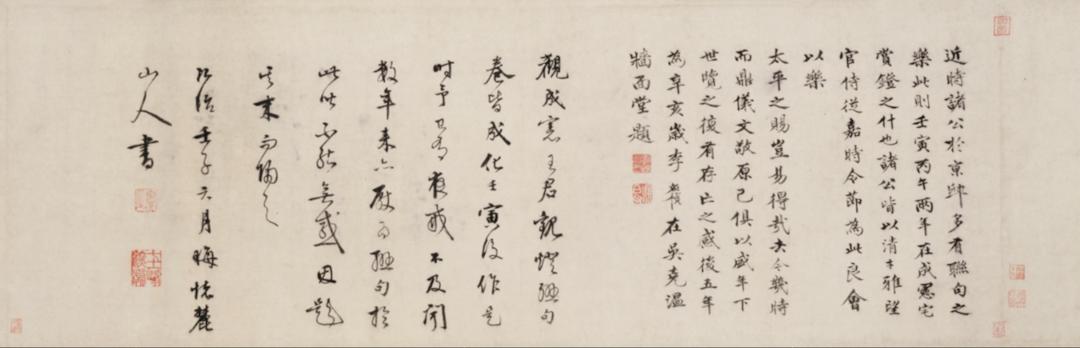 近時諸公於京邸多有聯句之
樂此則壬寅丙午兩年在成憲宅
賞鐙之什也諸公皆以清才雅望
官侍從嘉時令節為此良會
以樂
太平之賜豈易得哉去今幾時
而鼎儀文敬原己俱以盛年下
世覽之復有存亡之感後五年
為辛亥歲李在吳堯溫
牆面堂題
觀成憲王君觀燈聯句
卷皆成化壬寅後作是
時予卧有痰戒不及聞
數年來亦廢而聯句於
此以不能無感因題
其末而歸之
弘治壬子六月晦拙麓
山人書